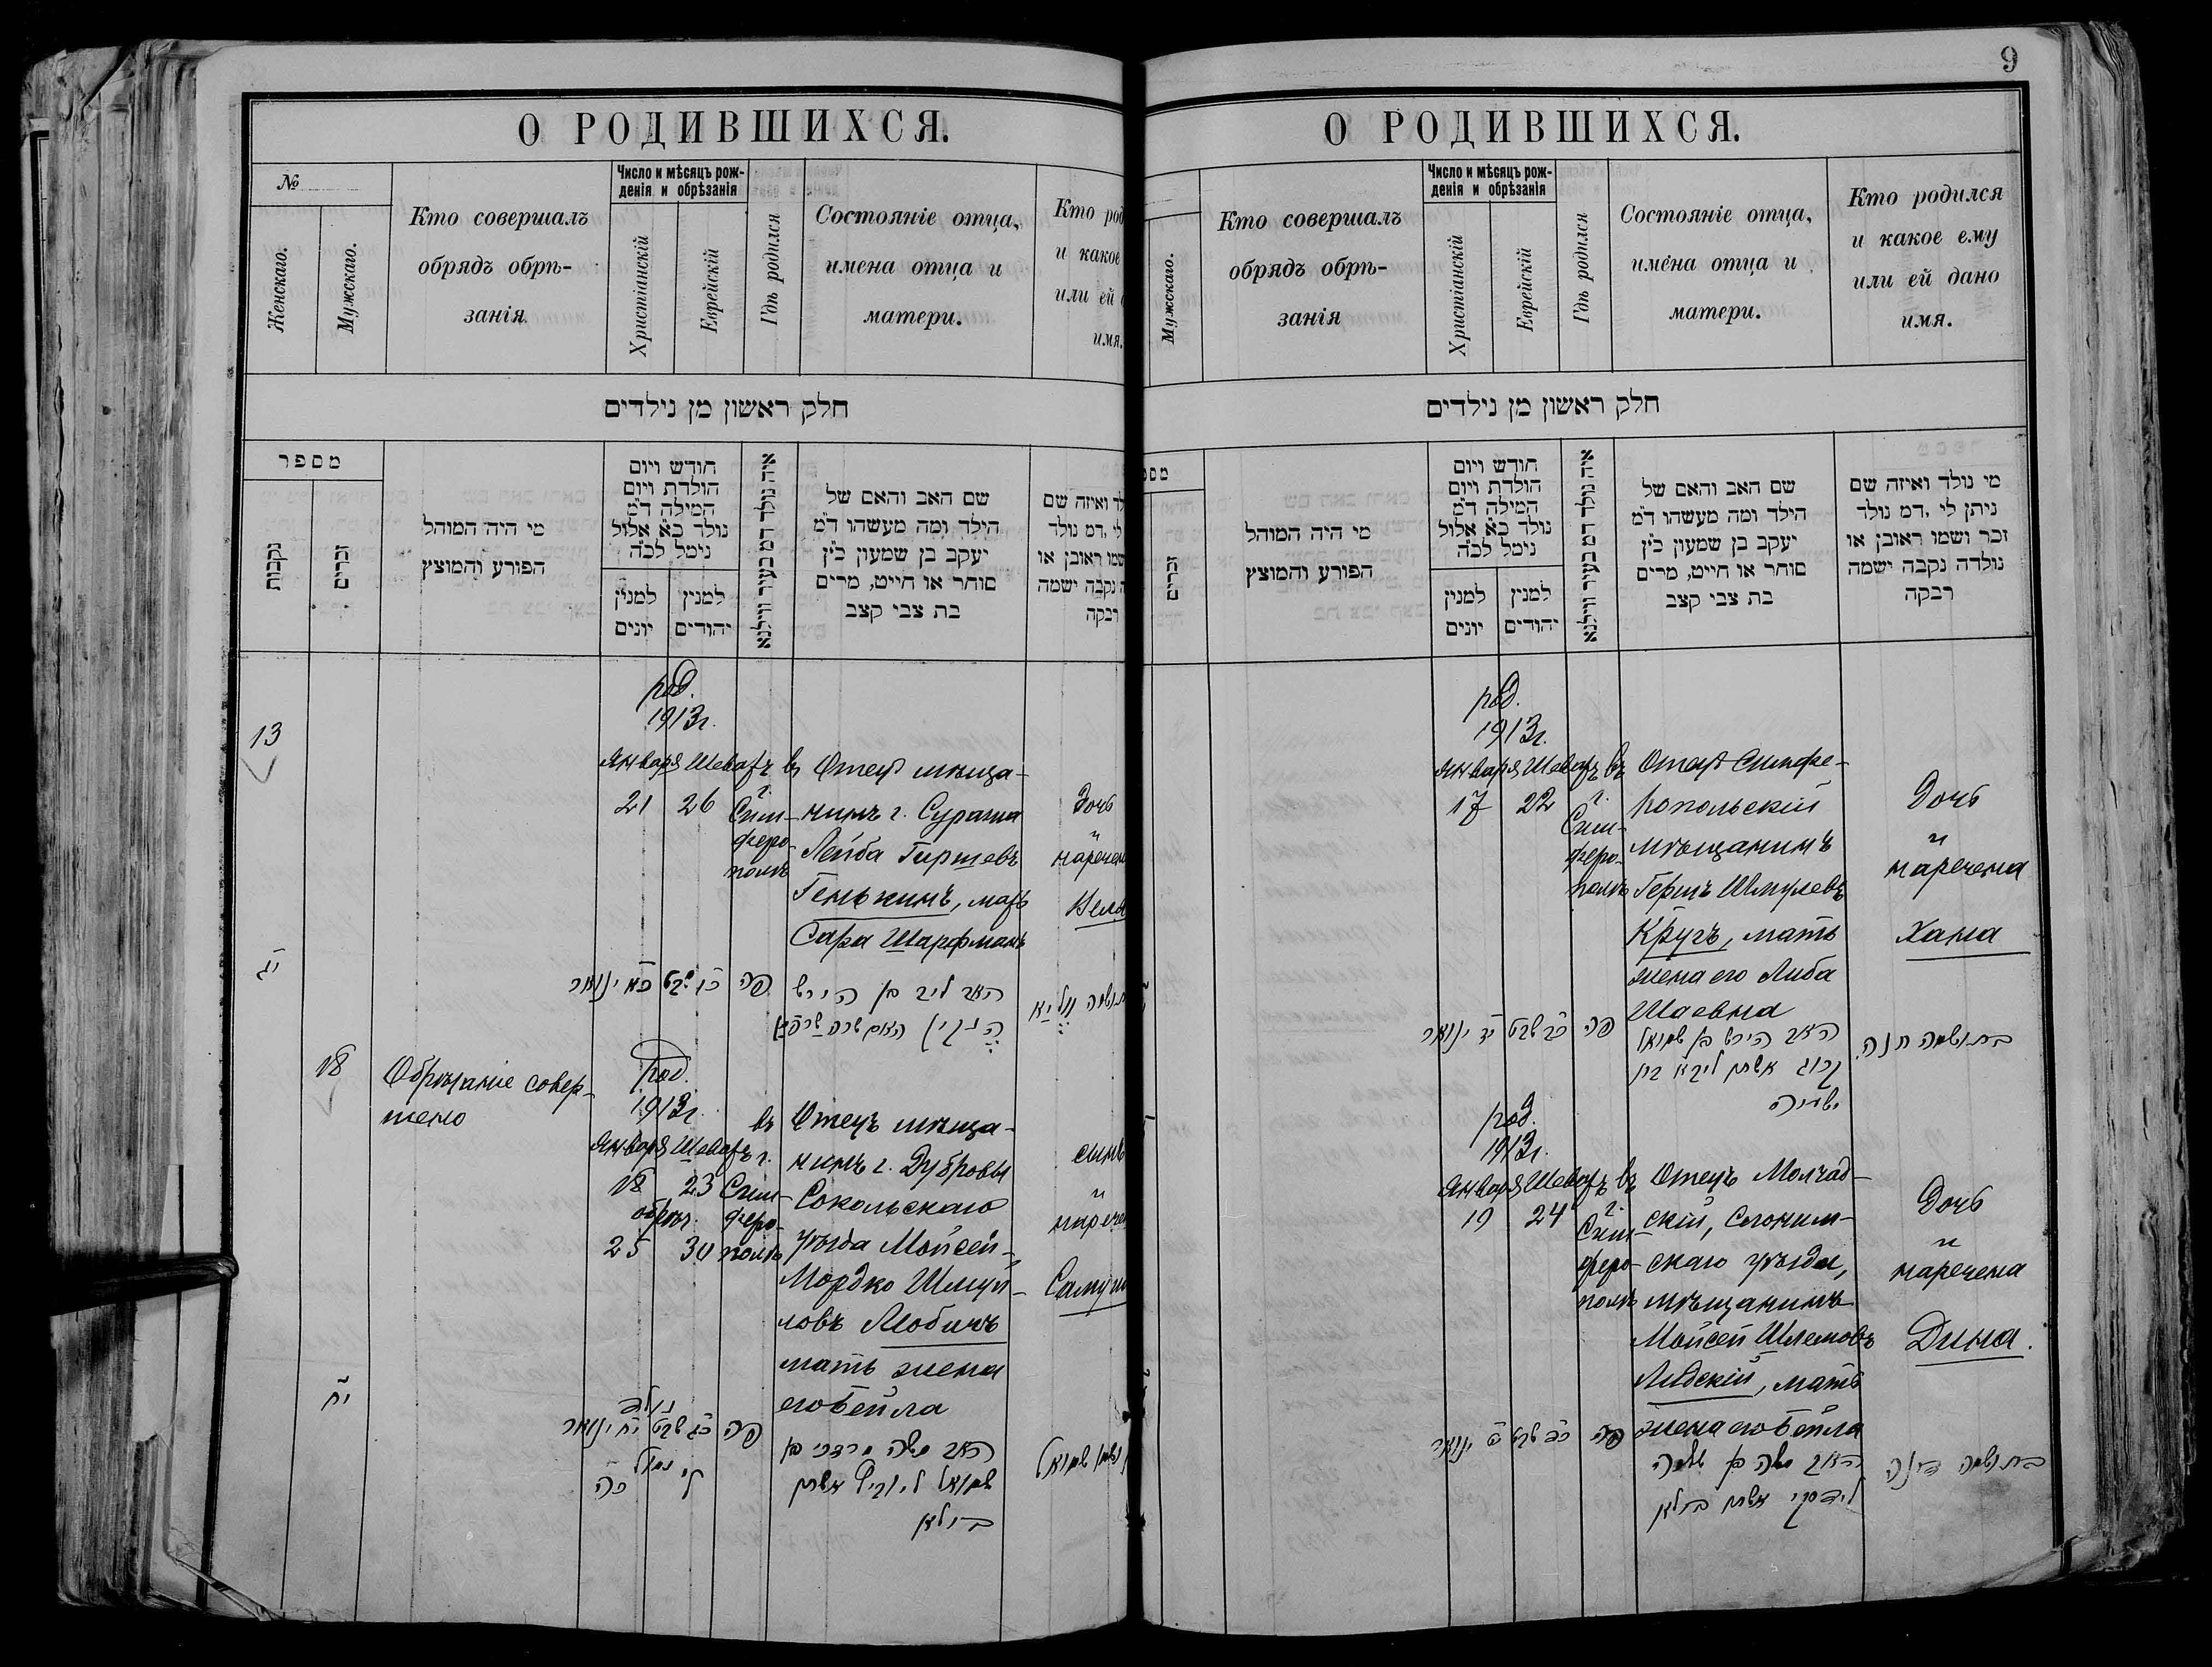 О РОДИВШИХСЯ.
№
Женскаго.
Мужскаго.
Кто совершалъ
обрядъ обрѣ-
занія
Число и мѣсяцъ рож-
денія и обрѣзанія
Христіанскій
Еврейскій
Гдѣ родился
Состояніе отца,
имена отца и
матери.
Кто род
и какое
или ей
имя.
חלק ראשון מן נילדים
מספר
נקבות
זכרים
מי היה המוהל
הפורע והמוצץ
חודש ויום
הולדת ויום
המילה ד"מ
נולד כ"א אלול
נימל לכ"ה
למנין
יונים
למנין
יהודים
איה נולד דמ בעיר ווילנא
שם האב והאם של
הילד ומה מעשהו ד"מ
יעקב בן שמעון כ"ץ
סוחר או חייט, מרים
בת צבי קצב
לד ואיזה שם
לי ,דמ נולד
שמו ראובן או
נקבה ישמה
רבקה
13
род.
1913 г.
Января Шеватъ въ
21 26 г.
Сим-
феро-
полѣ
Отецъ мѣща-
нинъ г. Суража
Лейба Гиршевъ
Генькинъ, мать
Сара Шарфманъ
Дочь
и
наречен
יג
כ"א ינואר
כ"ו שבט
פה
האב ליב בן הירש
הענקין האם שרה שרפמן
18
Обрѣзаніе совер-
шено
род.
1913 г.
Января Шеватъ въ г.
18 23 Сим-
обрѣз. феро-
25 30 полѣ
Отецъ мѣща-
нинъ г. Дубровы
Сокольскаго
уѣзда Мойсей-
Мордко Шмуй-
ловъ Любичъ
мать жена
его Бейла
сынъ
и
нарече
Саму
יח
נולד
י"ח ינואר
כ"ג שבט
פה
נמול
כ"ה
האב משה מרדכי בן
שמואל ליוביץ אשתו
ביילא
ושמו שמואל
9
О РОДИВШИХСЯ.
Мужскаго.
Кто совершалъ
обрядъ обрѣ-
занія
Число и мѣсяцъ рож-
денія и обрѣзанія
Христіанскій
Еврейскій
Гдѣ родился
Состояніе отца,
имена отца и
матери.
Кто родился
и какое ему
или ей дано
имя.
חלק ראשון מן נילדים
מספ
זכרים
מי היה המוהל
הפורע והמוצץ
חודש ויום
הולדת ויום
המילה ד"מ
נולד כ"א אלול
נימל לכ"ה
למנין
יונים
למנין
יהודים
איה נולד דמ בעיר ווילנא
שם האב והאם של
הילד ומה מעשהו ד"מ
יעקב בן שמעון כ"ץ
סוחר או חייט, מרים
בת צבי קצב
מי נולד ואיזה שם
ניתן לי ,דמ נולד
זכר ושמו ראובן או
נולדה נקבה ישמה
רבקה
род.
1913 г.
Января Шеватъ въ
17 22 г.
Сим-
феро-
полѣ
Отецъ Симфе-
ропольскій
мѣщанинъ
Гершъ Шмулевъ
Кругъ, мать
жена его Либа
Шаевна
Дочь
и
наречена
Хана
י"ז ינואר
כ"ב שבט
פה
האב הירש בן שמואל
קרוג אשתו ליבא בת
ישעיה
בת ושמה חנה
род.
1913 г.
Января Шеватъ въ
19 24 г.
Сим-
феро-
полѣ
Отецъ Молчад-
скій, Слоним-
скаго уѣзда,
мѣщанинъ
Мойсей Шлемовъ
Лидскій, мать
жена его Бейла
Дочь
и
наречена
Дина.
ינואר
כ"ד שבט
פה
האב משה בן שלמה
לידסקי אשתו ביילא
בת ושמה דינה